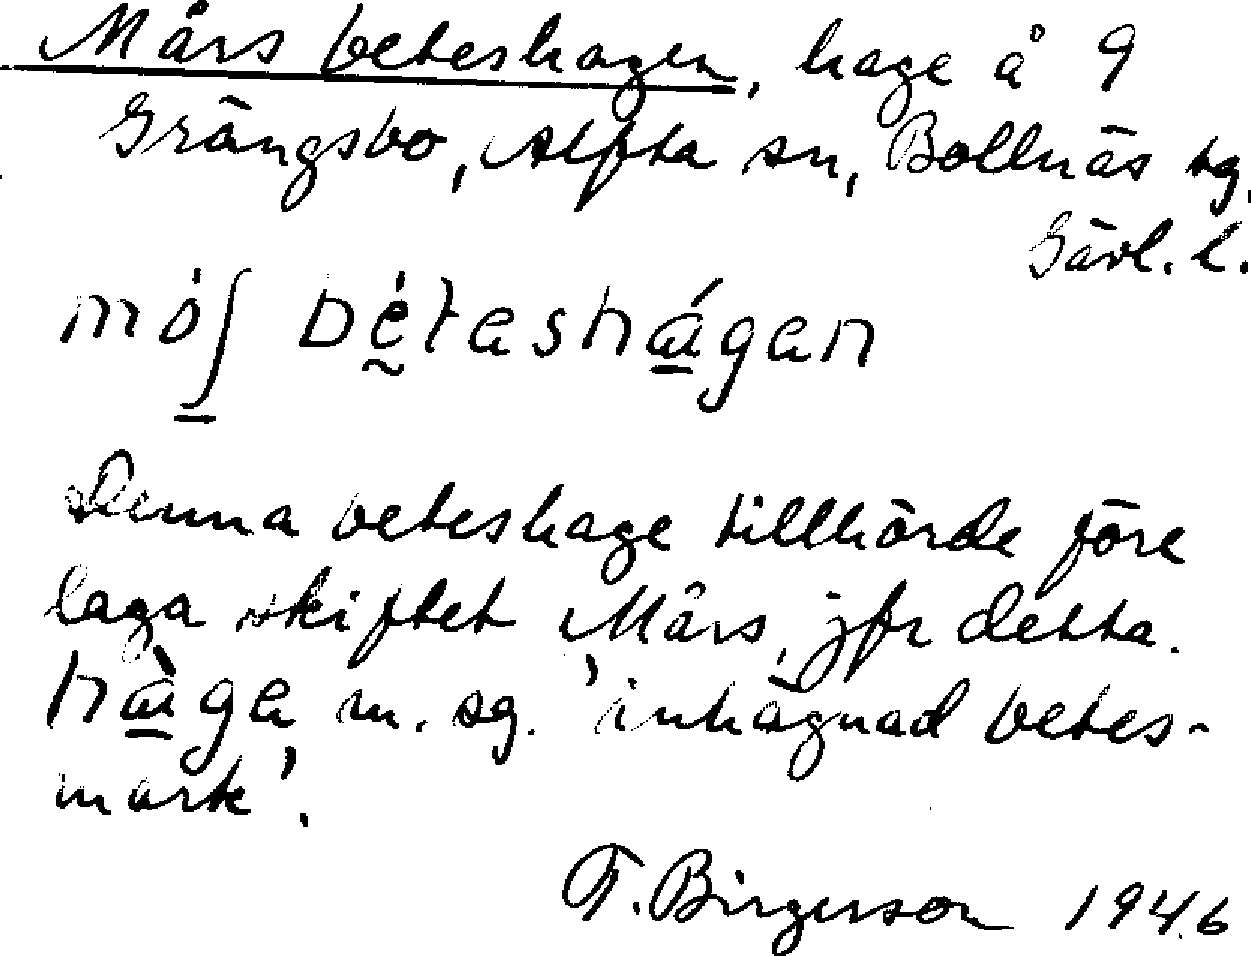 Mårs beteshagen, hage å 9
Grängsbo, Alfta sn, Bollnäs tg,
Gävl. l.
mó̱ʃ bḛ́tashá̱gan
Denna beteshage tillhörde före
laga skiftet Mårs, jfr detta.
hà̱ga m. sg. 'inhägnad betes-
mark'.
F. Birgerson 1946